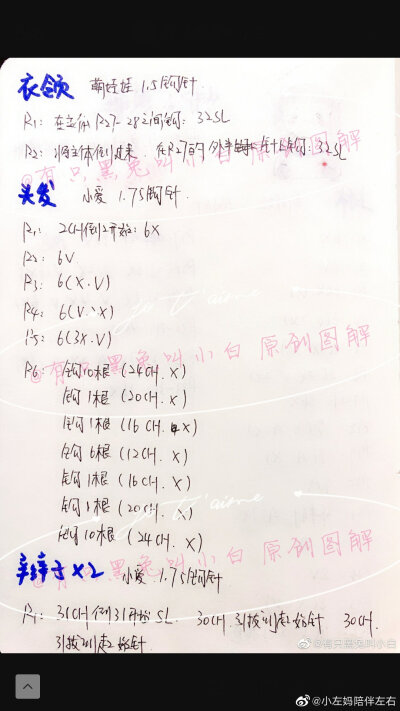 衣领 萌娃娃 1.5钩针
R1: 在立体R27-28之间钩: 32SL
R2: 将立体倒过来 在R27的外半针上钩: 32SL
@有只黑兔叫小白 原创图解
头发 小爱 1.75钩针
R1: 2CH倒2开始: 6X
R2: 6V
R3: 6(X.V)
R4: 6(V.X)
R5: 6(3X.V)
je t'aime
@有只黑兔叫小白 原创图解
R6: 钩10根 (24CH. X)
钩1根 (20CH. X)
钩1根 (16 CH. X)
钩6根 (12CH. X)
钩1根 (16CH. X)
钩1根 (20CH. X)
钩10根 (24CH. X)
je t'aime
@有只黑兔叫小白 原创图解
辫子X2 小爱 1.75钩针
R1: 31CH倒31开始SL. 30CH. 引拔到起始针 30CH.
引拔到起始针
@有只黑兔叫小白
@小左妈陪伴左右